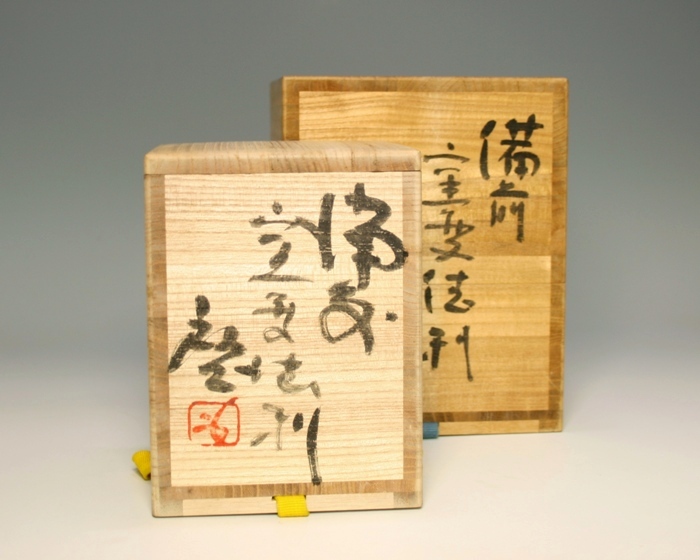 備前
窯変徳利
備前
窯変徳利